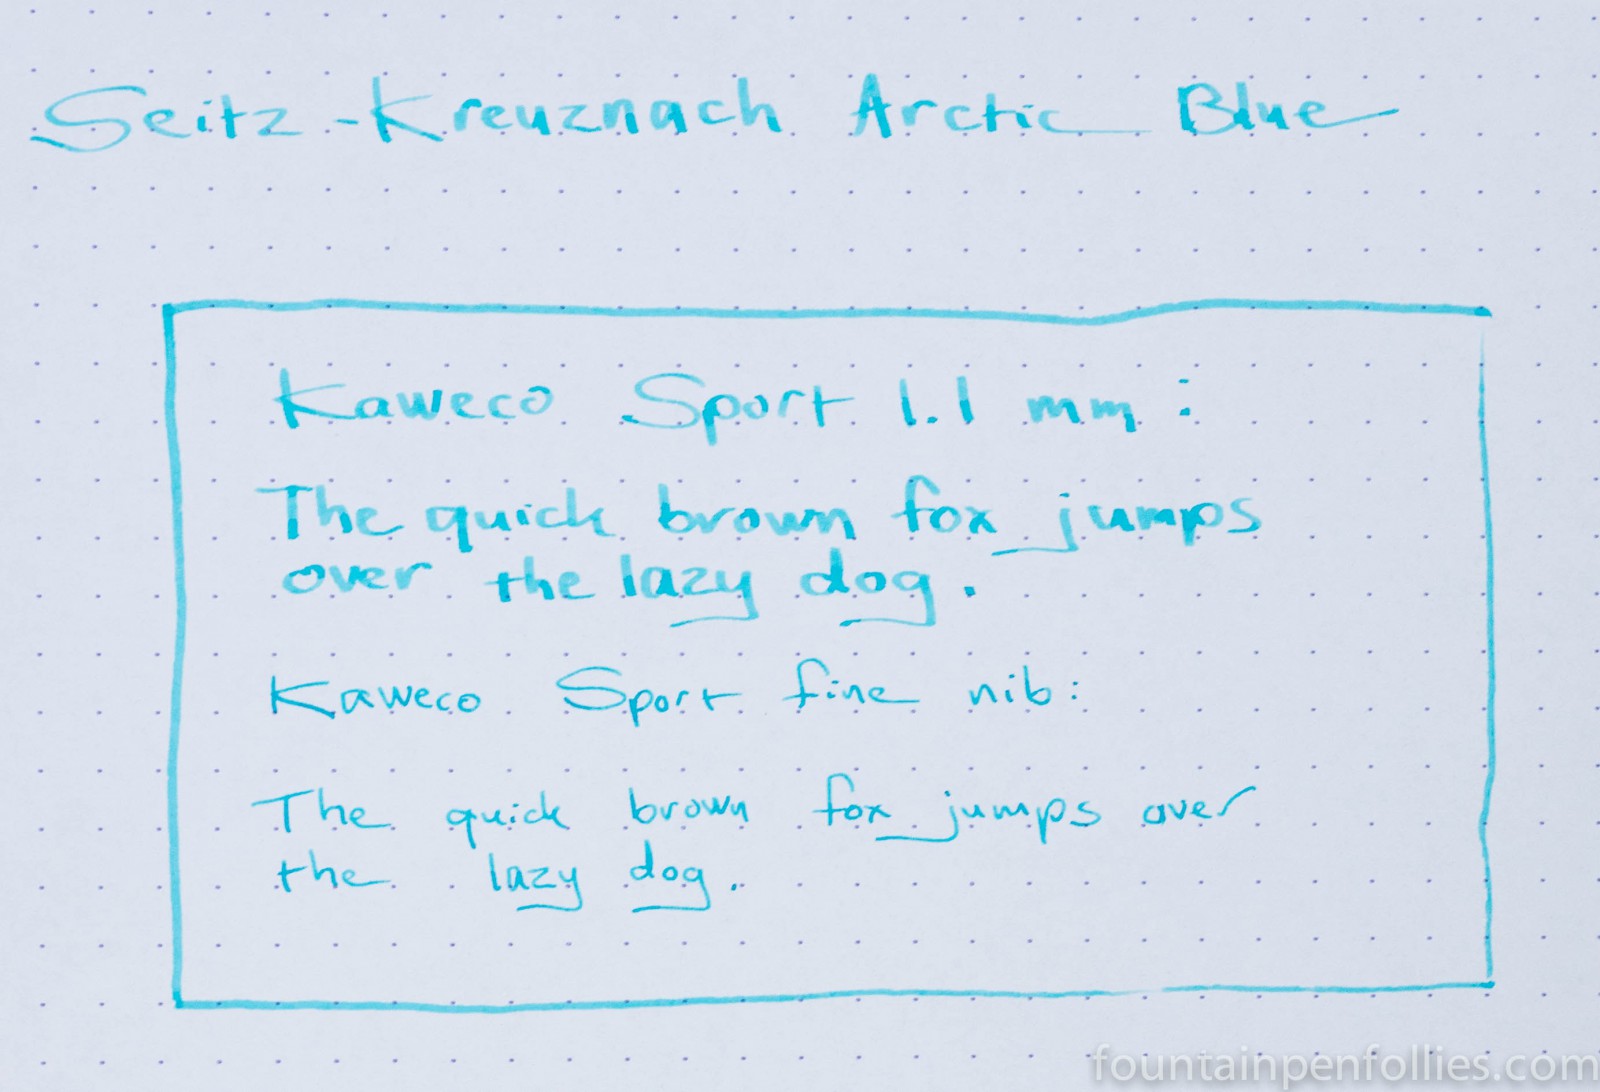 Seitz-Kreuznach Arctic Blue
Kaweco Sport 1.1 mm:
The quick brown fox jumps
over the lazy dog.
Kaweco Sport fine nib:
The quick brown fox jumps over
the lazy dog.
fountainpenfollies.com